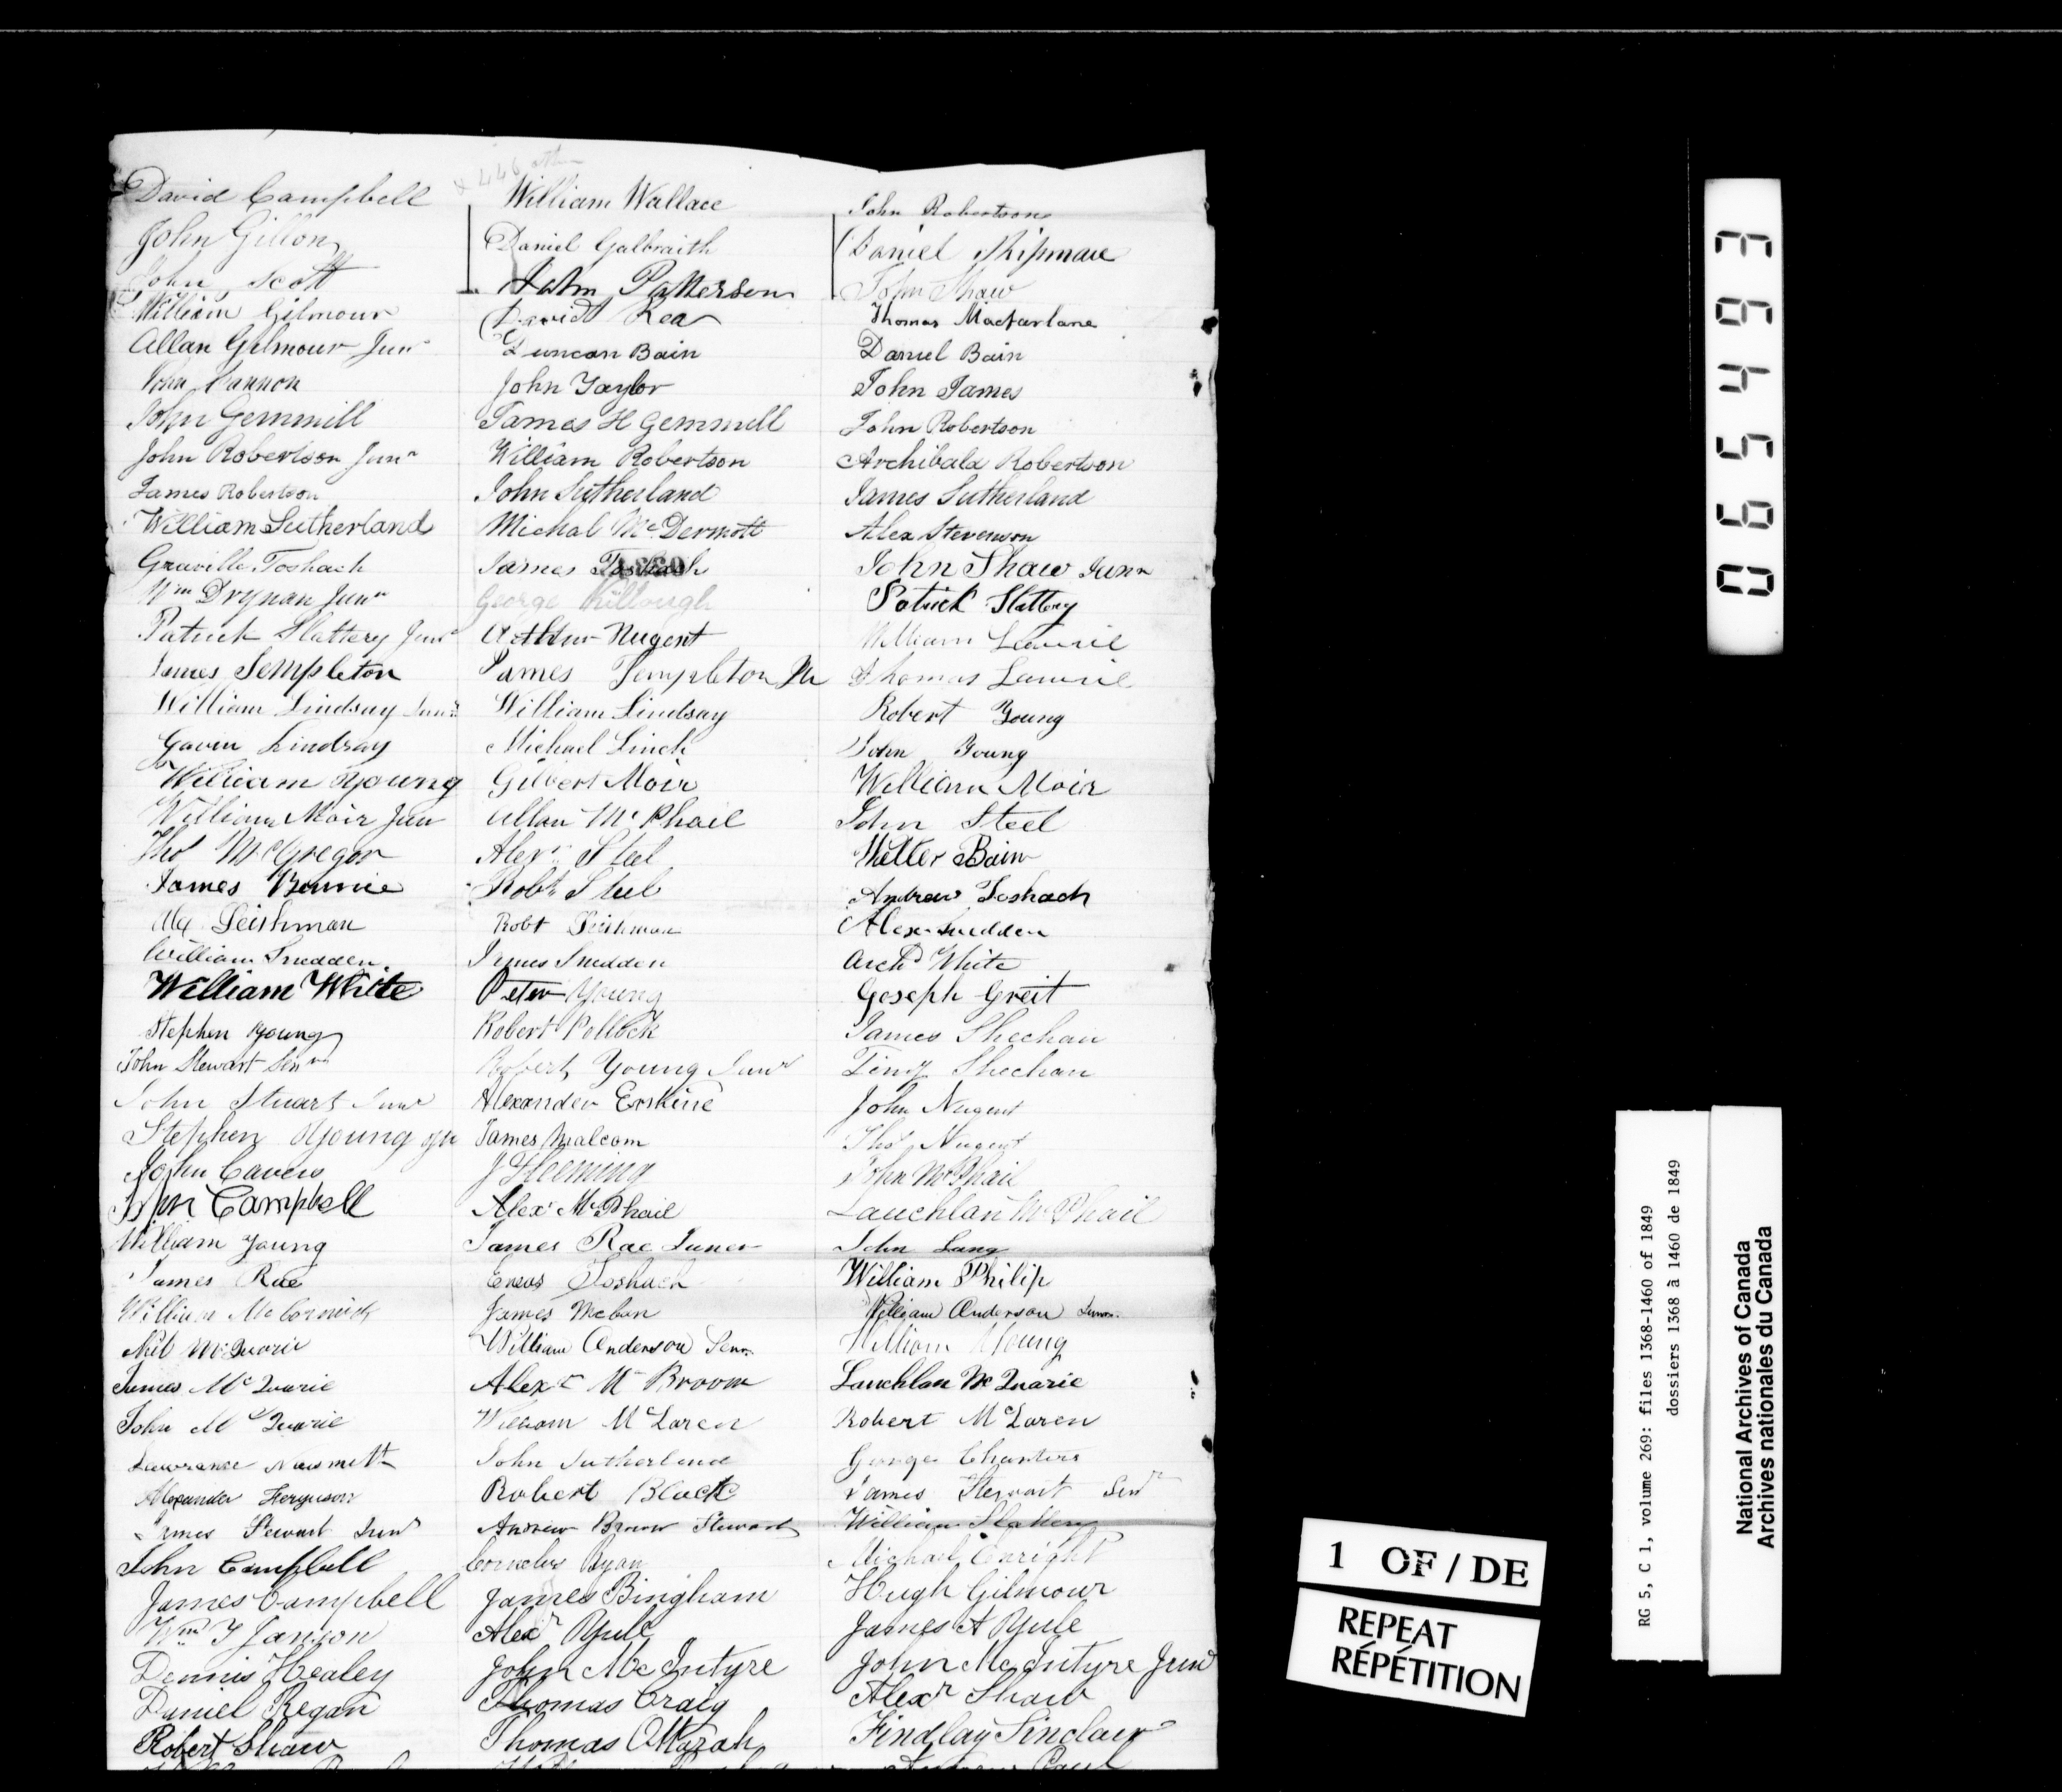 & 446 others
David Campbell William Wallace John Robertson
John Gillon Daniel Galbraith Daniel Shipman
John Scott John Patterson John Shaw
William Gilmour David Rea Thomas Macfarlane
Allan Gilmour Junr Duncan Bain Daniel Bain
John Cannon John Taylor John James
John Gemmill James H Gemmill John Robertson
John Robertson Junr William Robertson Archibald Robertson
James Robertson John Sutherland James Sutherland
William Sutherland Michal McDermott Alex Stevenson
Graville Toshach James Toshach John Shaw Junr
Wm Drynan Junr George Killough Patrick Slattery
Patrick Slattery Junr Arthur Nugent William Lawrie
James Templeton James Templeton Jr Thomas Lawrie
William Lindsay Junr William Lindsay Robert Young
Gavin Lindsay Michael Linch John Young
William Young Gilbert Moir William Moir
William Moir Jun Allan McPhail John Steel
Thos McGregor Alexr Steel Walter Bain
James Bowie Robt Steel Andrew Toshach
Alex Leishman Robt Leishman Alex Snedden
William Snedden James Snedden Archd White
William White Peter Young Goseph Greit
Stephen Young Robert Pollock James Sheehan
John Stewart Senr Robert Young Junr Timy Sheehan
John Stuart Junr Alexander Erskine John Nugent
Stephen Young Jn James Malcom Thos Nugent
John Cavers J Fleeming John McPhail
John Campbell Alexr McPhail Lauchlan McPhail
William Young James Rae Juner John Lang
James Rae Eneas Toshach William Philip
William McCormick James Meban William Anderson Junr
Neil McQuarie William Anderson Senr William Young
James McQuarie Alexr McBroom Lauchlan McQuarie
John McQuarie William McLaren Robert McLaren
Lawrance Naismith John Sutherland George Chanters
Alexander Ferguson Robert Black James Stewart Senr
James Stewart Junr Andrew Brown Stewart William Slattery
John Campbell Cornelius Ryan Michael Enright
James Campbell James Bingham Hugh Gilmour
Wm Y Janson Alexr Yuill James A Yuill
Dennis Healey John McIntyre John McIntyre Junr
Daniel Regan Thomas Craig Alexr Shaw
Robert Shaw Thomas OMarah Findlay Sinclair
065493
RG 5, C 1, volume 269: files 1368-1460 of 1849
dossiers 1368 à 1460 de 1849
National Archives of Canada
Archives nationales du Canada
1 OF / DE
REPEAT
RÉPÉTITION